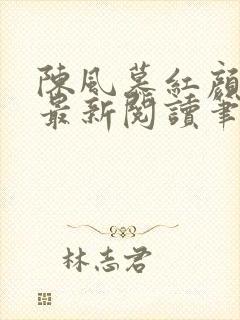 陳風慕紅顏
最新閱讀筆
林志君